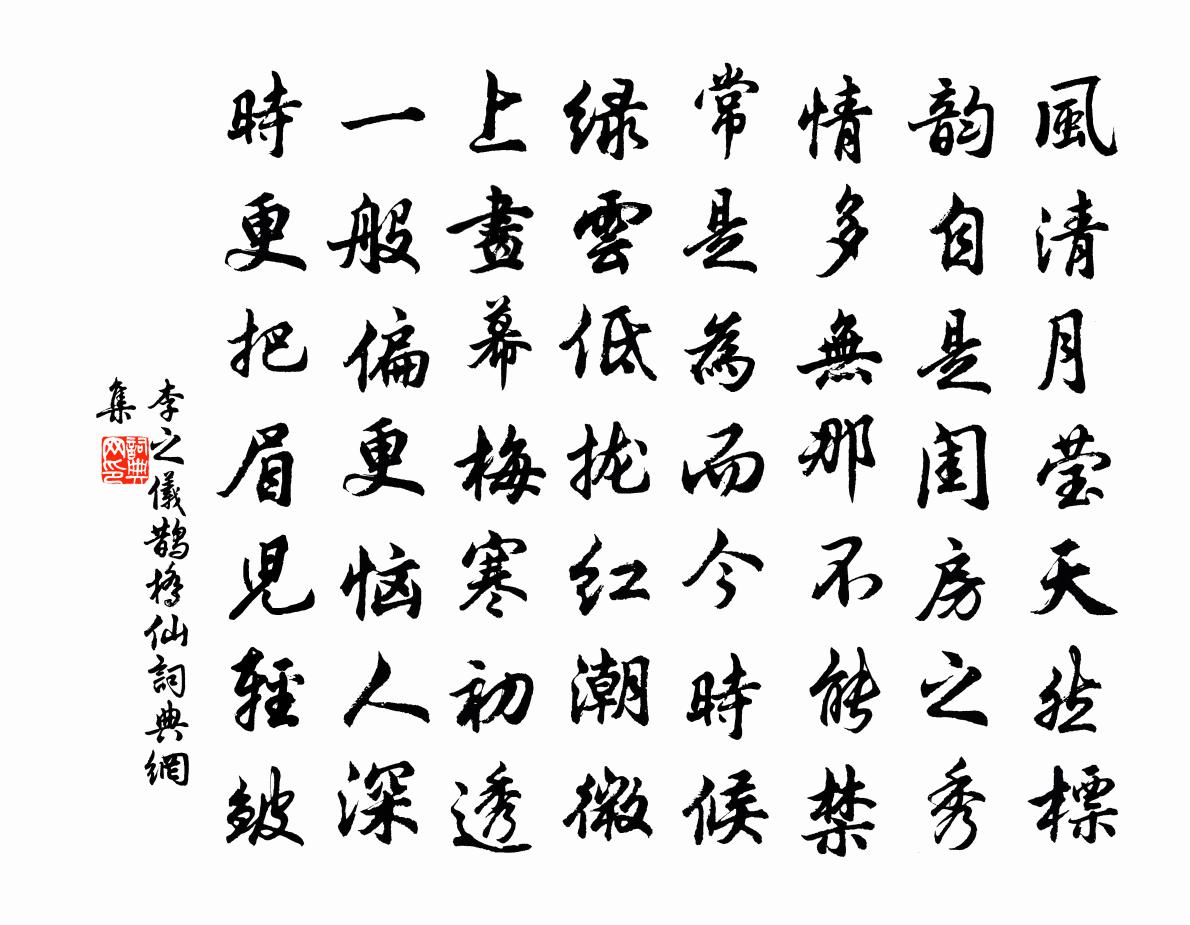 風清月莹天然標
韵自是闺房之秀
情多無那不能禁
常是為而今時候
绿雲低拢红潮微
上畫幕梅寒初透
一般偏更恼人深
時更把眉兒輕皺
李之儀鹊橋仙詞典網
集
詞典网印